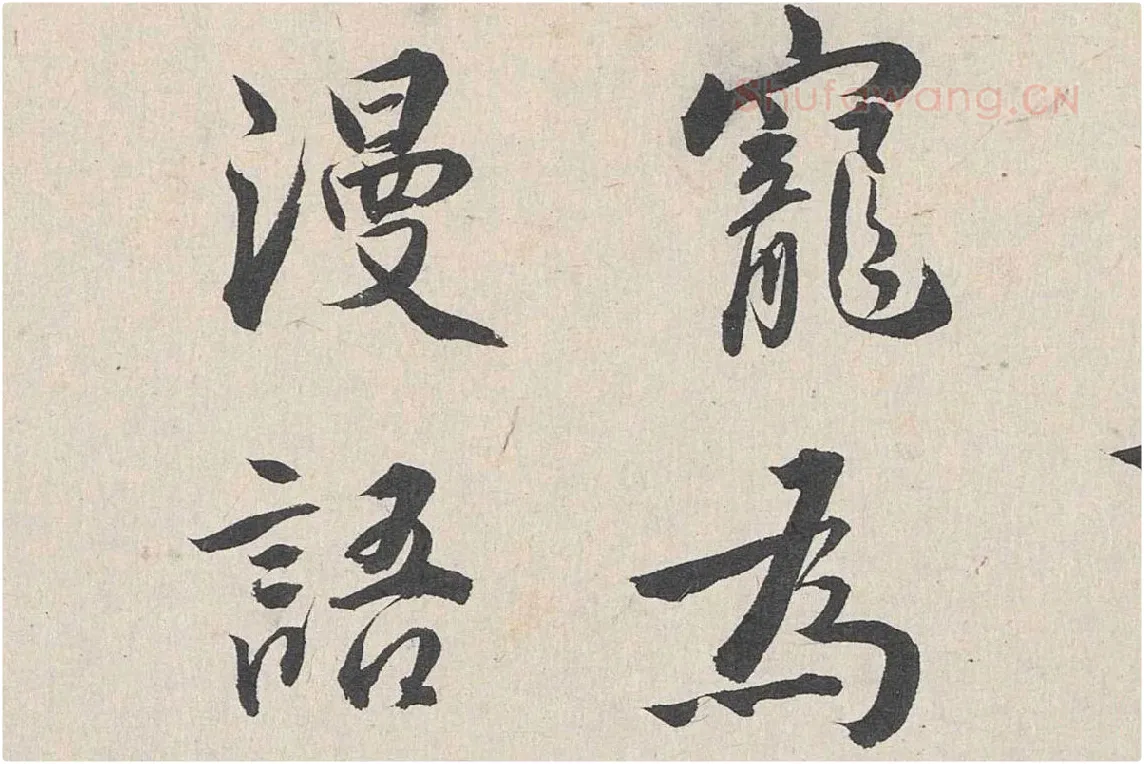 寵為
漫語
Shufawang.CN